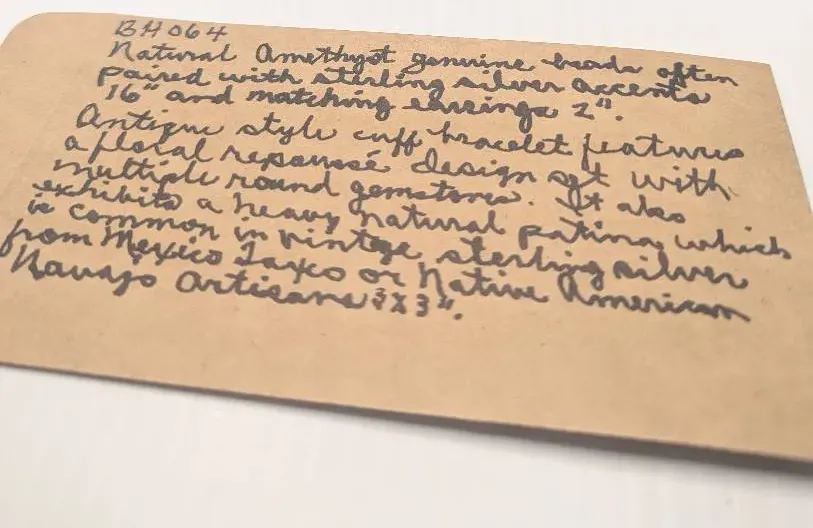 BH064
Natural Amethyst genuine beads often
paired with sterling silver accents
16" and matching earrings 2".
Antique style cuff bracelet features
a floral repoussé design set with
multiple round gemstones. It also
exhibits a heavy natural patina, which
is common in vintage sterling silver
from Mexico Taxco or Native American
Navajo Artisans 3x3".